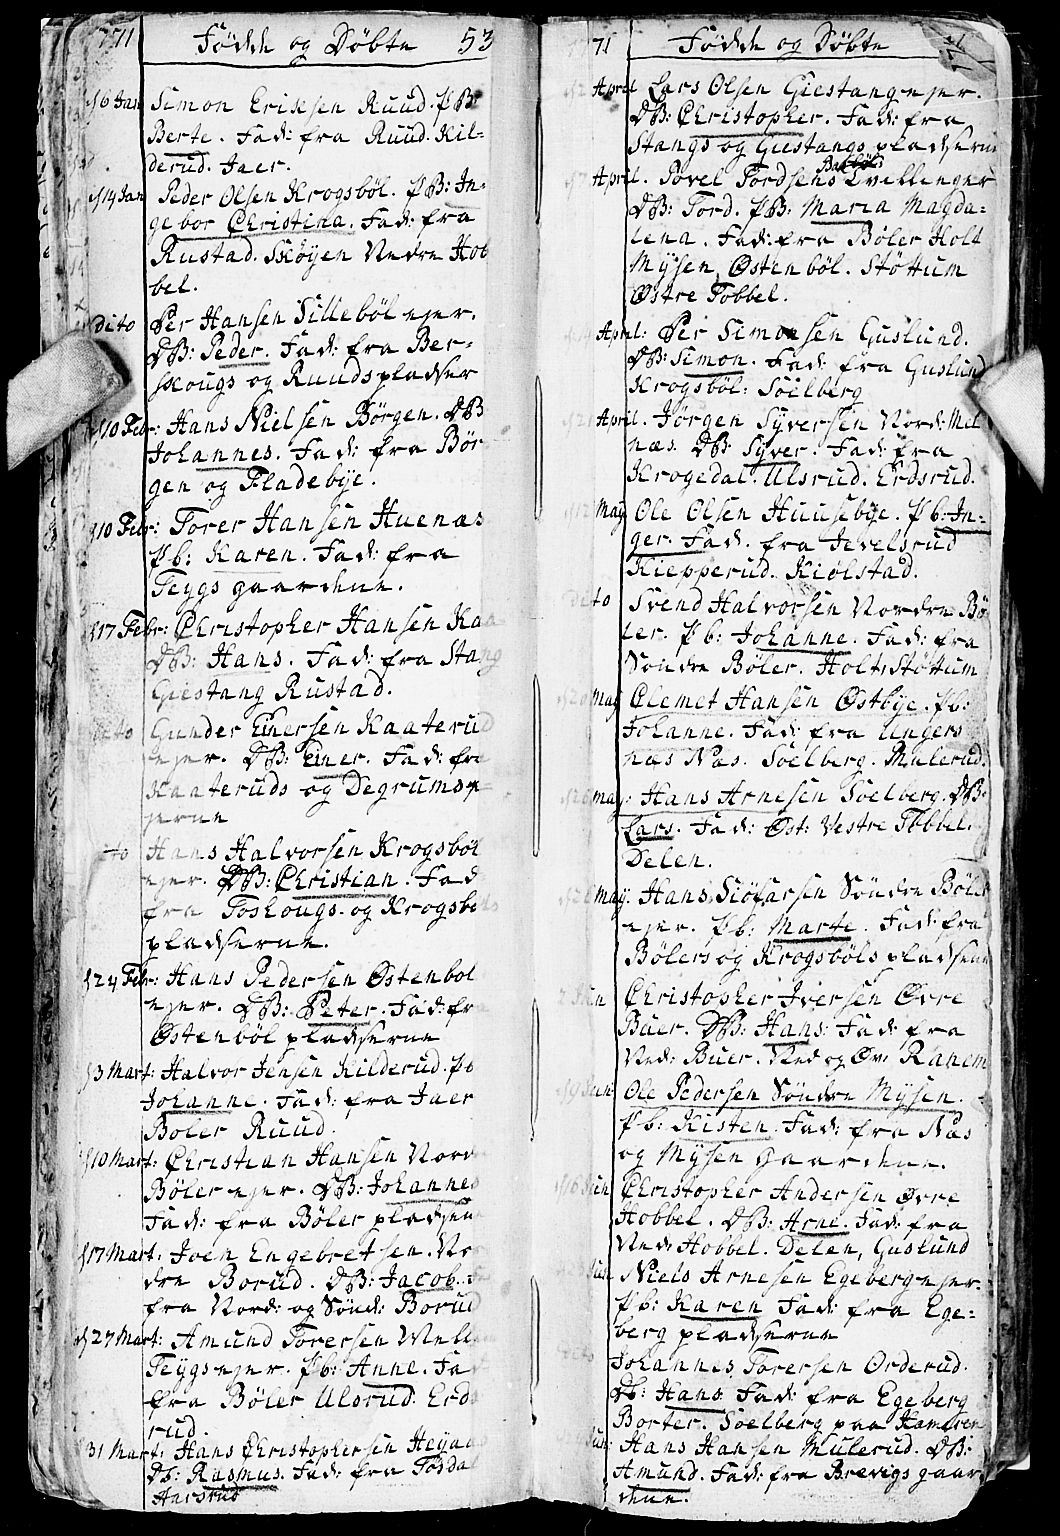 1771 Fødde og Døbte 53
d 6 Jan Simon Erichsen Ruud. P B:
Berte. Fad: fra Ruud. Kil-
derud. Jaer.
d 14 Jan Peder Olsen Krogsbøl. P B: In-
gebor Christina. Fad: fra
Rustad. Skøyen Nedre Hob
bel.
dito Per Hansen Sillebøl ejer.
DB: Peder. Fad: fra Ber-
skougs og Ruuds pladser
d 10 Febr: Hans Nielsen Børgen. DB
Johannes. Fad: fra Bør
gen og Fladebye.
d 10 Febr: Torer Hansen Huenæs
P b: Karen. Fad: fra
Teygs gaardene.
d 17 Febr: Christopher Hansen Kaa
DB: Hans. Fad: fra Stang
Giestang Rustad.
dito Gunder Einersen Kaaterud
ejer. DB: Einer. Fad: fra
Kaateruds og Degrums ej-
erne
dito Hans Halvorsen Krogsbøl
ejer. DB: Christian. Fad
fra Foshougs. og Krogsbøls
pladserne.
d 24 Febr: Hans Pedersen Østenbøl
ejer. DB: Peter. Fad: fra
Østenbøl pladserne
d 3 Mart: Halvor Jensen Kilderud. P b
Johanne. Fad: fra Jaer
Boler Ruud.
d 10 Mart: Christian Hansen Nord
Bøler ejer. DB: Johannes
Fad: fra Bøler pladsene
d 17 Mart: Joen Engebretsen. Nor
dre Borud. DB: Jacob.
fra Nord: og Sønd: Borud
d 27 Mart: Amund Torersen
Teygs ejer. Pb: Anne. Fad
fra Bøler Ulsrud. Erds
rud.
31 Mart: Hans Christophersen
Db: Rasmus. Fad: fra Tøsdal
Aarsrud
71 Fødde og Døbte
April Lars Olsen Giestang ejer.
DB: Christopher. Fad: fra
Stangs og Giestangs pladserne
April. Povel Tordsens Bakbøl Tvillinger
DB: Tord. P B: Maria Magda-
lena. Fad: fra Bøler Holt
Mysen, Østenbøl. Støttum
Østre Tobbel.
April: Per Simonsen Guslund.
DB: Simon. Fad: fra Guslund
Krogsbøl: Soelberg
April. Jørgen Syversen Nord: Mel
næs. DB: Syver. Fad: fra
Krogedal. Ulsrud. Erdsrud.
d 12 May Ole Olsen Huusebye. P b: In-
ger. Fad. fra Jevelsrud
Kiepperud. Kiølstad.
dito Svend Halvorsen Nordre Bø
ler. P b: Johanne. Fad: fra
Søndre Bøler. Holt. Støttum
d 20 May Clemet Hansen Østbye. P b:
Johanne. Fad: fra Ungers
næs Næs. Soelberg. Mulerud.
may: Hans Arnesen Soelberg. DB:
Lars. Fad: Øst: Vestre Tobbel.
Delen.
may: Hans Siøfarsen Søndre Bøler
ejer. P b: Marte. Fad: fra
Bølers og Krogsbøls pladsene
2 Jun Christopher Iversen Øvre
Buer. DB: Hans. Fad: fra
Ned: Buer. Ned og Øv: Ranem
d 9 Jun Ole Pedersen Søndre Mysen.
P b: Kisten. Fad: fra Næs
og Mysen gaardene.
d 16 Jun Christopher Andersen Øvre
Hobbel. DB: Arne. Fad: fra
Ned: Hobbel. Delen, Guslund
Jun Niels Arnesen Egeberg ejer.
P b: Karen Fad: fra Ege-
berg pladserne
dito Johannes Torersen Orderud.
Db: Hans Fad: fra Egeberg
Borter. Soelberg paa Hameren
Jun: Hans Hansen Mulerud. DB:
Amund. Fad: fra Brevigs gaar
dene.